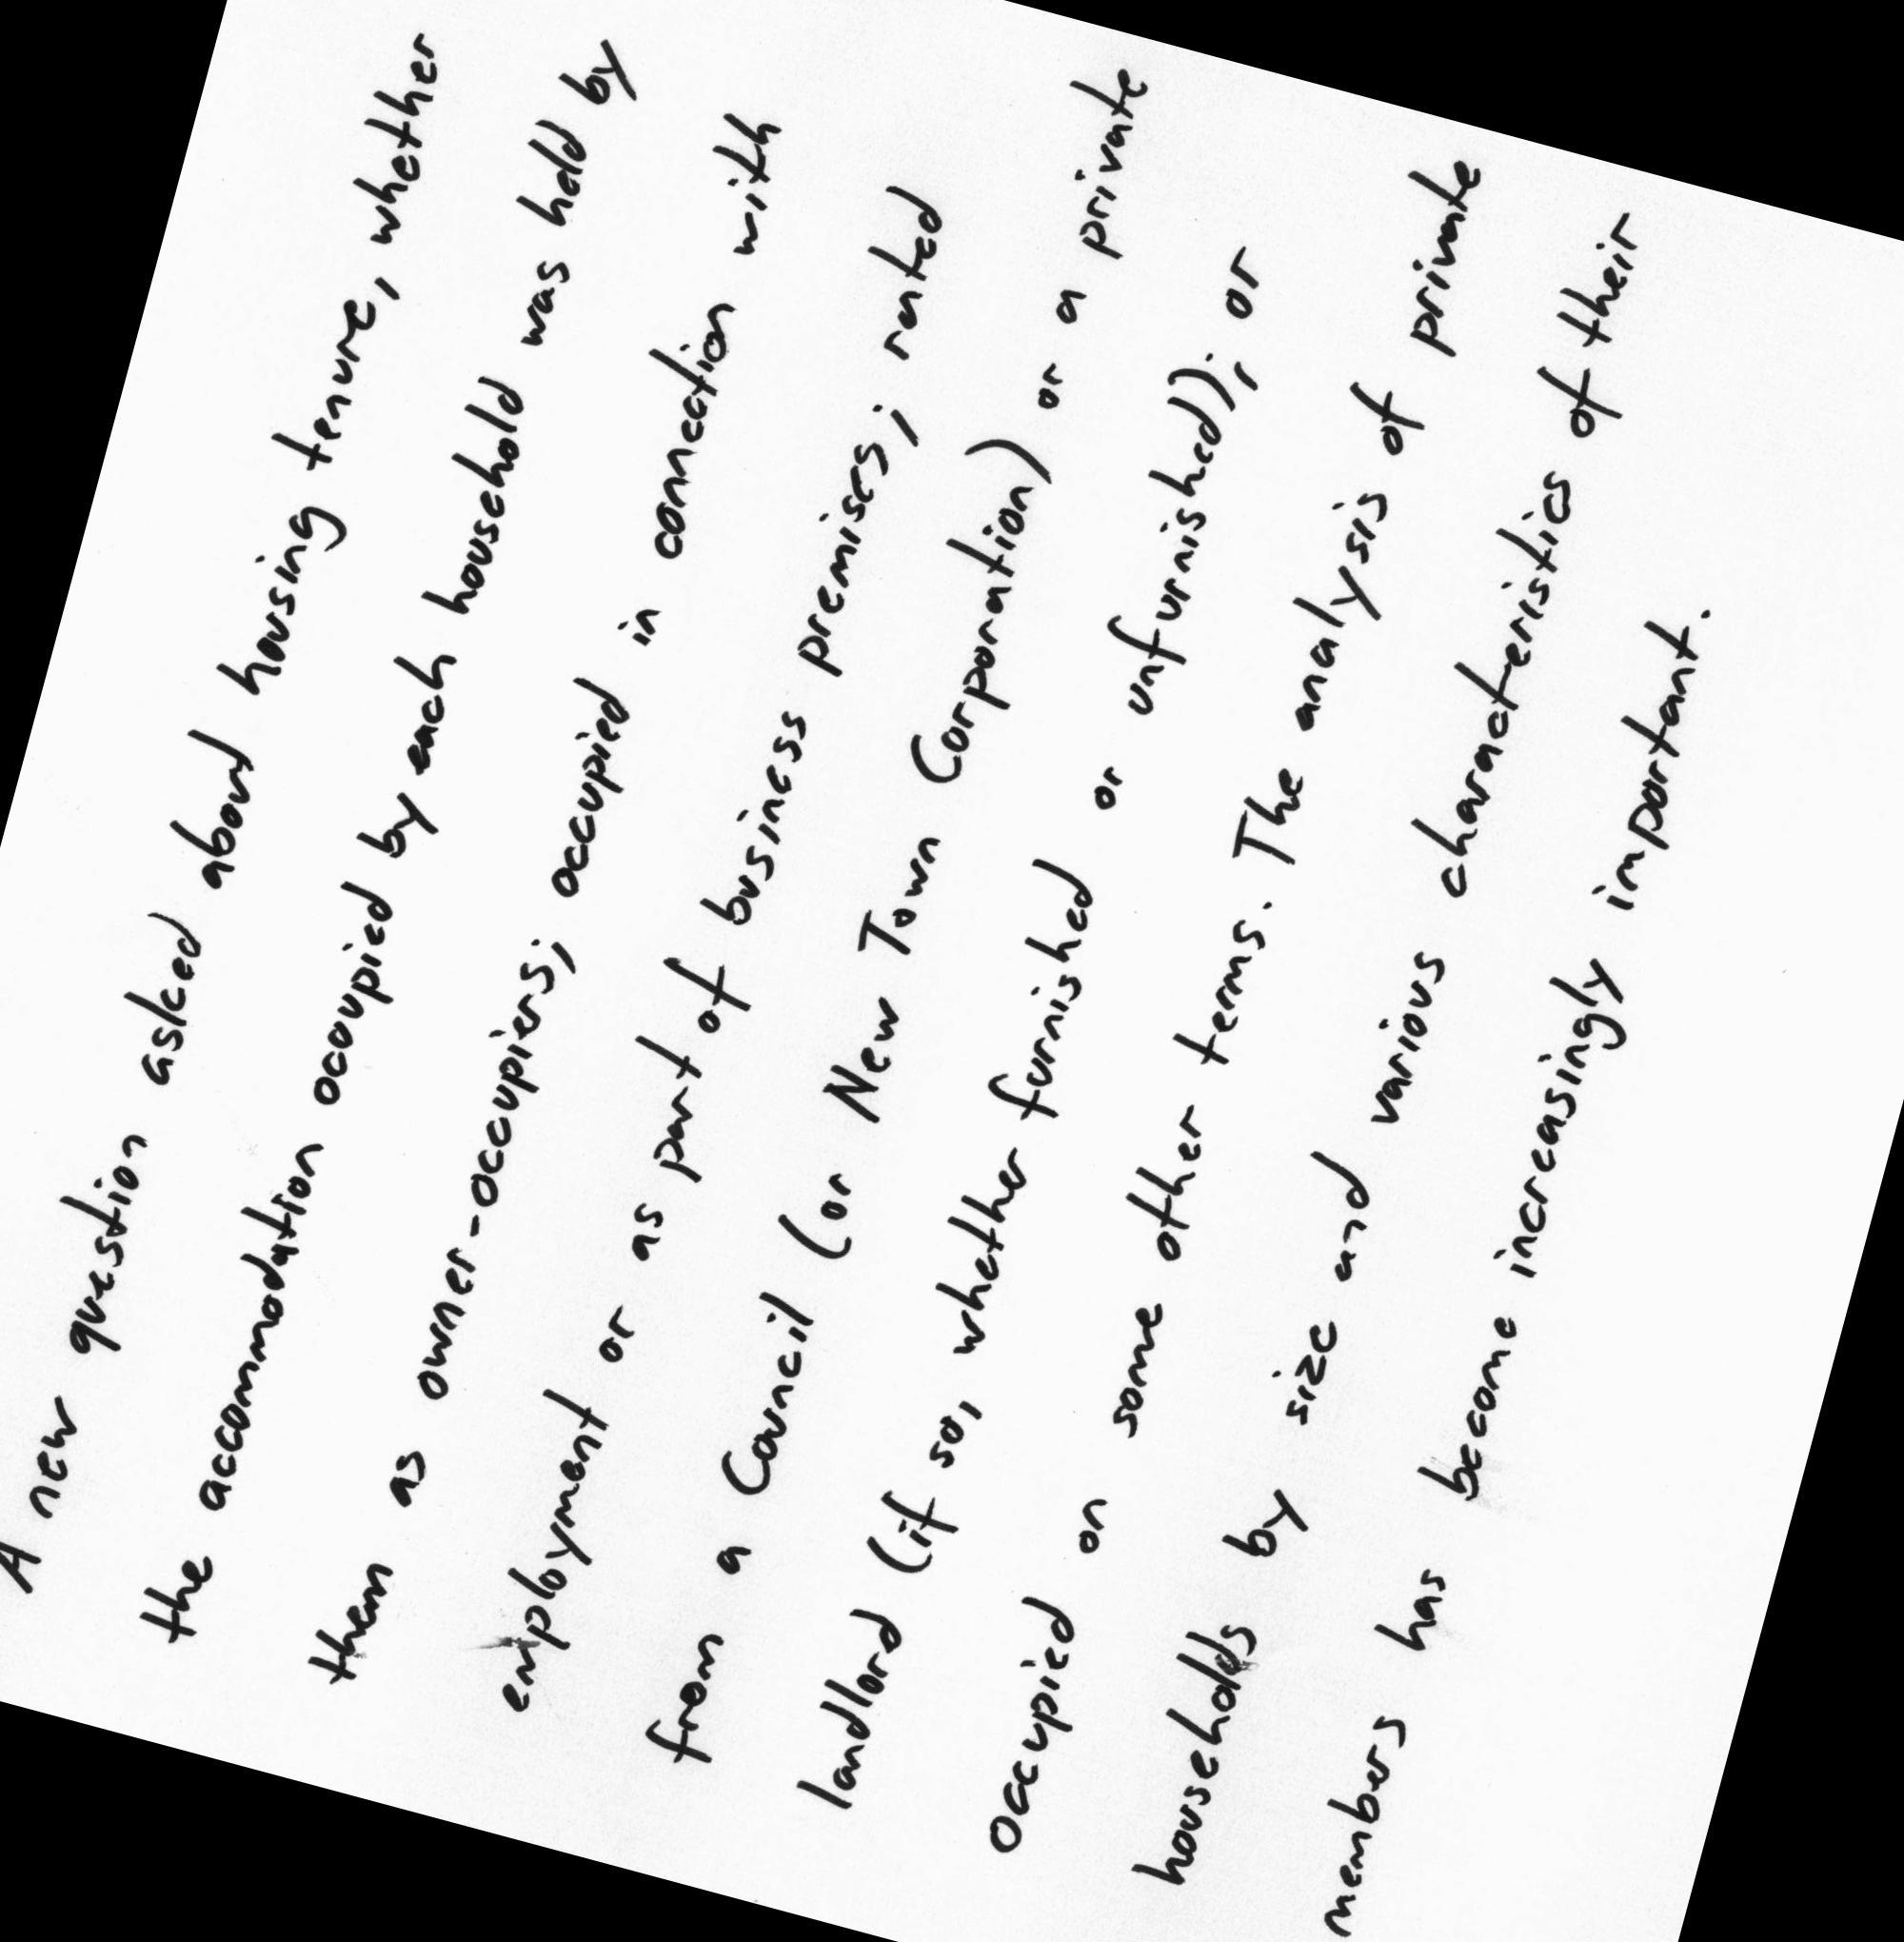 A new question asked about housing tenure, whether
the accommodation occupied by each household was held by
them as owner-occupiers; occupied in connection with
employment or as part of business premises; rented
from a Council (or New Town Corporation) or a private
landlord (if so, whether furnished or unfurnished); or
occupied on some other terms. The analysis of private
households by size and various characteristics of their
members has become increasingly important.